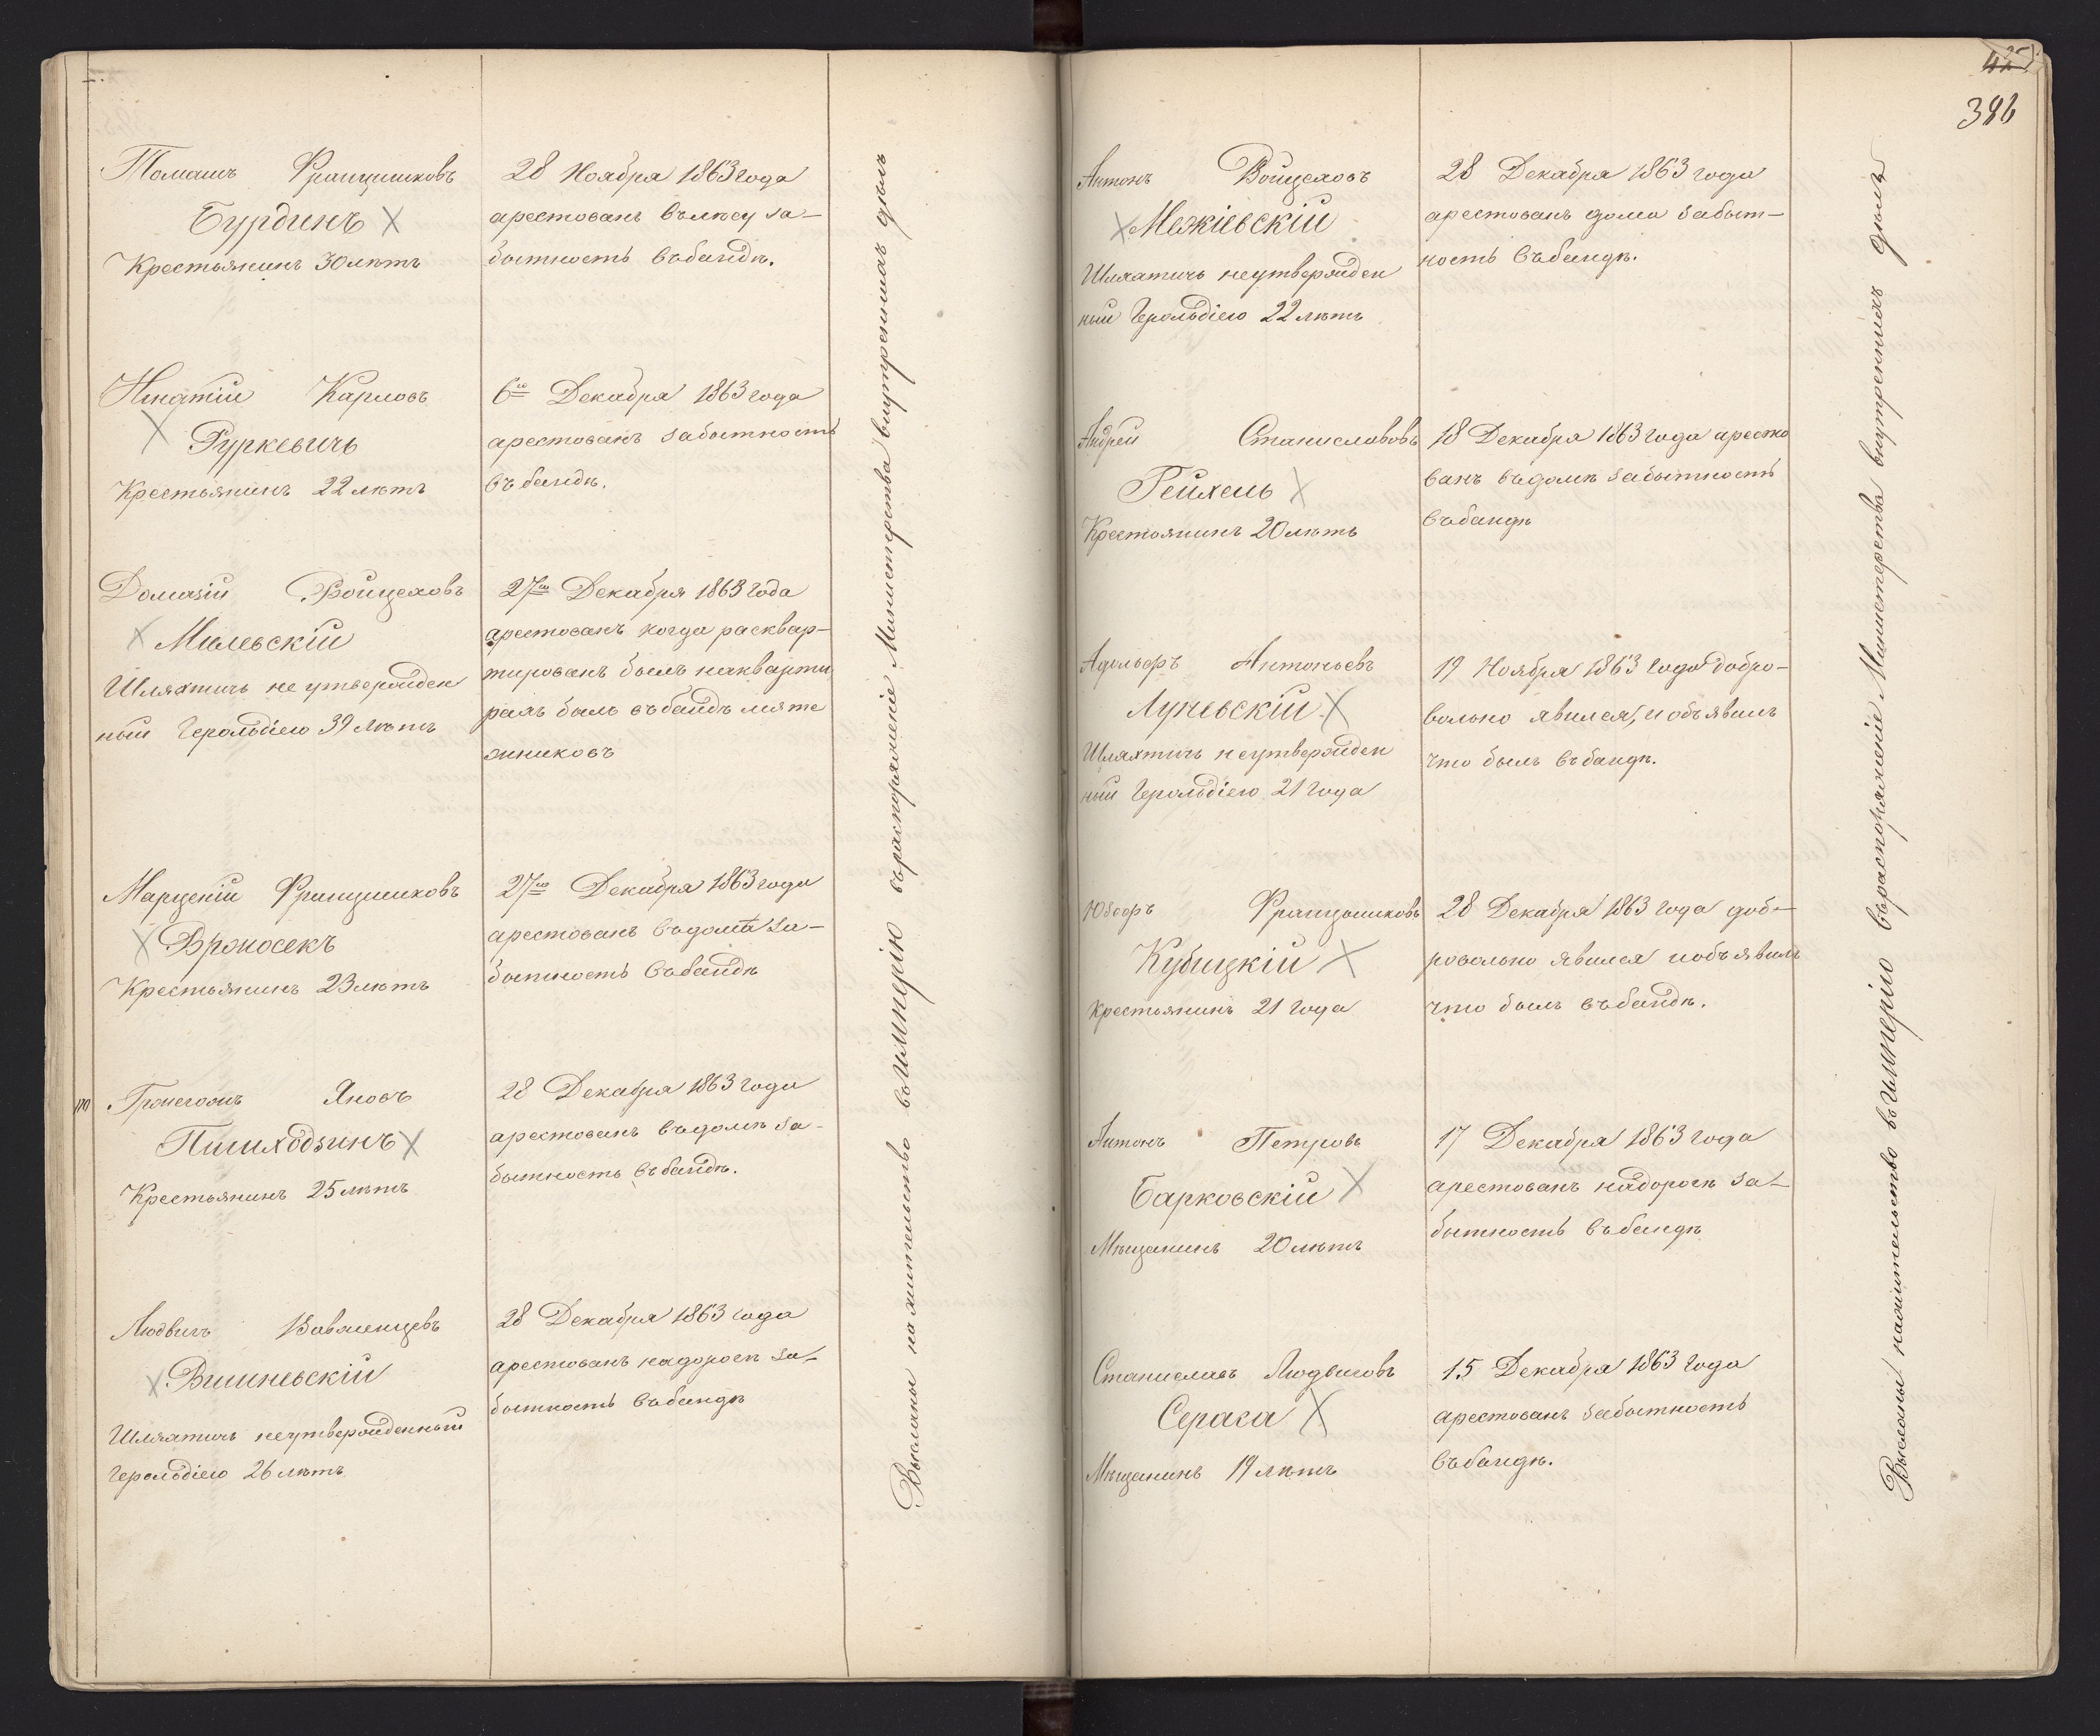 Томашъ Францишковъ
Бурдинъ X
Крестьянинъ 30 лѣтъ
28 Ноября 1863 года
арестованъ въ лѣсу за-
бытность въ бандѣ.
Игнатій Карловъ
X Гуркевичь
Крестьянинъ 22 лѣтъ
6го Декабря 1863 года
арестованъ за бытность
въ бандѣ.
Домазій Войцеховъ
X Милевскій
Шляхтичь не утвержден
ный Герольдіею 39 лѣтъ
27го Декабря 1863 года
арестованъ когда расквар-
тированъ былъ на кварти
рахъ былъ въ бандѣ мяте
жниковъ
Марцекій Францишковъ
X Вроносекъ
Крестьянинъ 23 лѣтъ
27го Декабря 1863 года
арестованъ въ домѣ за-
бытность въ бандѣ
Гржегожъ Яновъ
Пшиходзинъ X
Крестьянинъ 25 лѣтъ
28 Декабря 1863 года
арестованъ въ домѣ за-
бытность въ бандѣ.
Людвигъ Вавженцевъ
X Вишневскій
Шляхтичь неутвержденный
Герольдіею 26 лѣтъ
28 Декабря 1863 года
арестованъ на дорогѣ за-
бытность въ бандѣ
Высланы на жительство въ Имперію въ распоряженіе Министерства внутреннихъ дѣлъ
386
Антонъ Войцеховъ
X Межіевскій
Шляхтичь неутвержден
ный Герольдіею 22 лѣтъ
28 Декабря 1863 года
арестованъ дома за быт-
ность въ бандѣ.
Андрей Станиславовъ
Рейхель X
Крестьянинъ 20 лѣтъ
18 Декабря 1863 года аресто
ванъ въ домѣ за бытность
въ бандѣ
Адольфъ Антоньевъ
Луневскій X
Шляхтичь неутвержден
ный Герольдіею 21 года
19 Ноября 1863 года добро-
вольно явился, и объявилъ
что былъ въ бандѣ.
Юзефъ Францишковъ
Кубицкій X
Крестьянинъ 21 года
28 Декабря 1863 года доб-
ровольно явился и объявилъ
что былъ въ бандѣ.
Антонъ Петровъ
Барковскій X
Мѣщанинъ 20 лѣтъ
17 Декабря 1863 года
арестованъ на дорогѣ за-
бытность въ бандѣ
Станиславъ Людвиговъ
Серака X
Мѣщанинъ 19 лѣтъ
15 Декабря 1863 года
арестованъ за бытность
въ бандѣ.
Высланы на жительство въ Имперію въ распоряженіе Министерства внутреннихъ дѣлъ